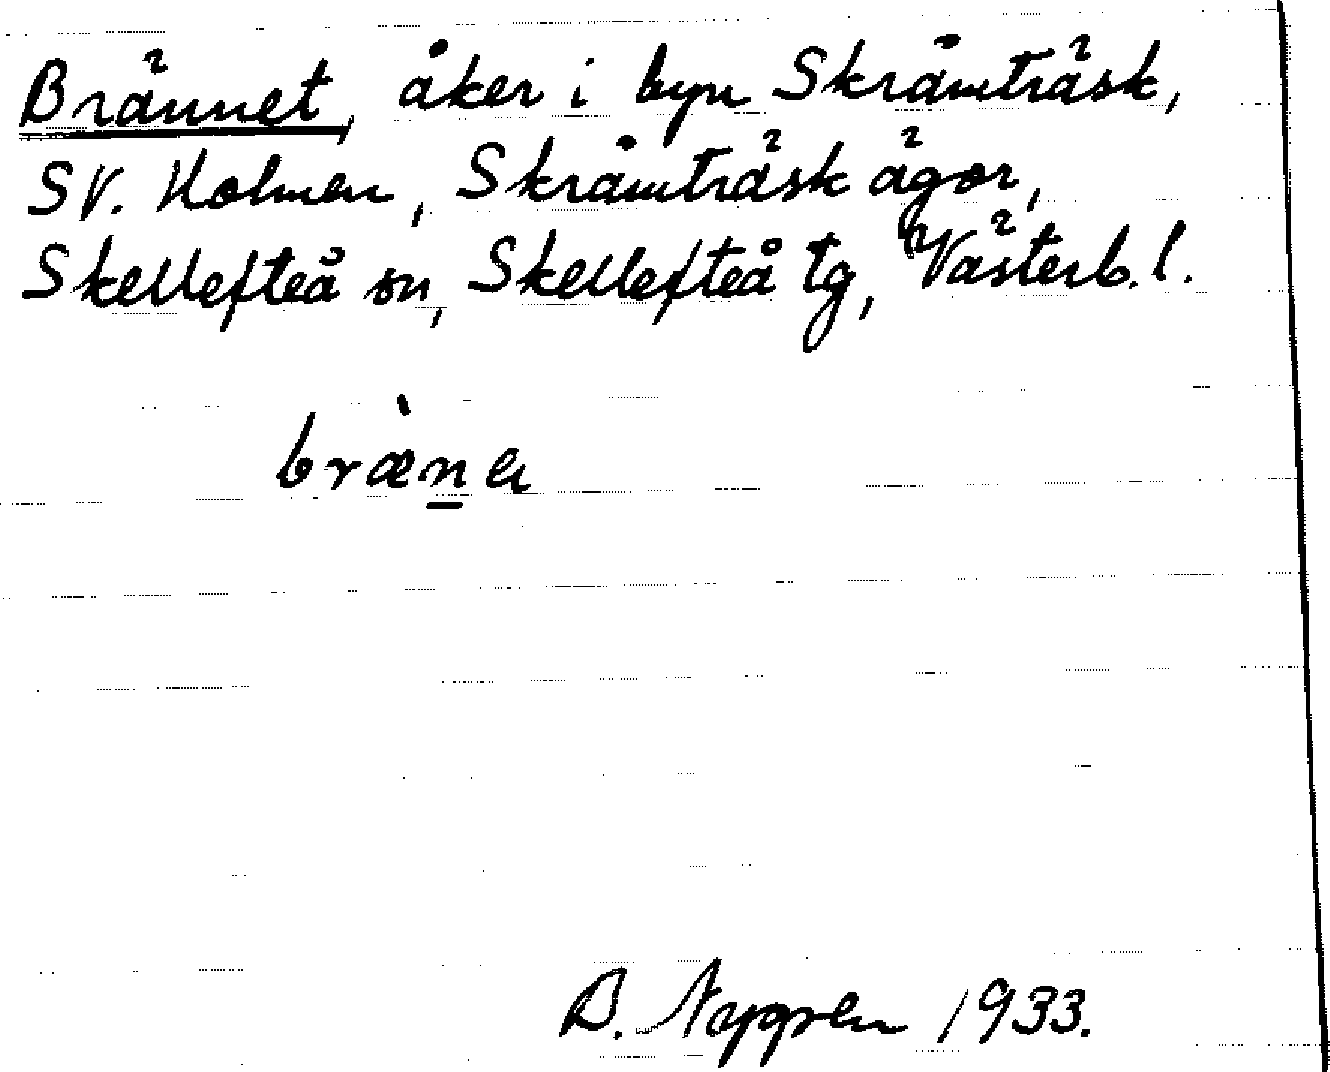 Brännet, åker i byn Skråmträsk,
SV. Holmen, Skråmträsk ägor,
Skellefteå sn, Skellefteå tg, Västerb. l.
bræ̀n̲a
B. Nygren 1933.